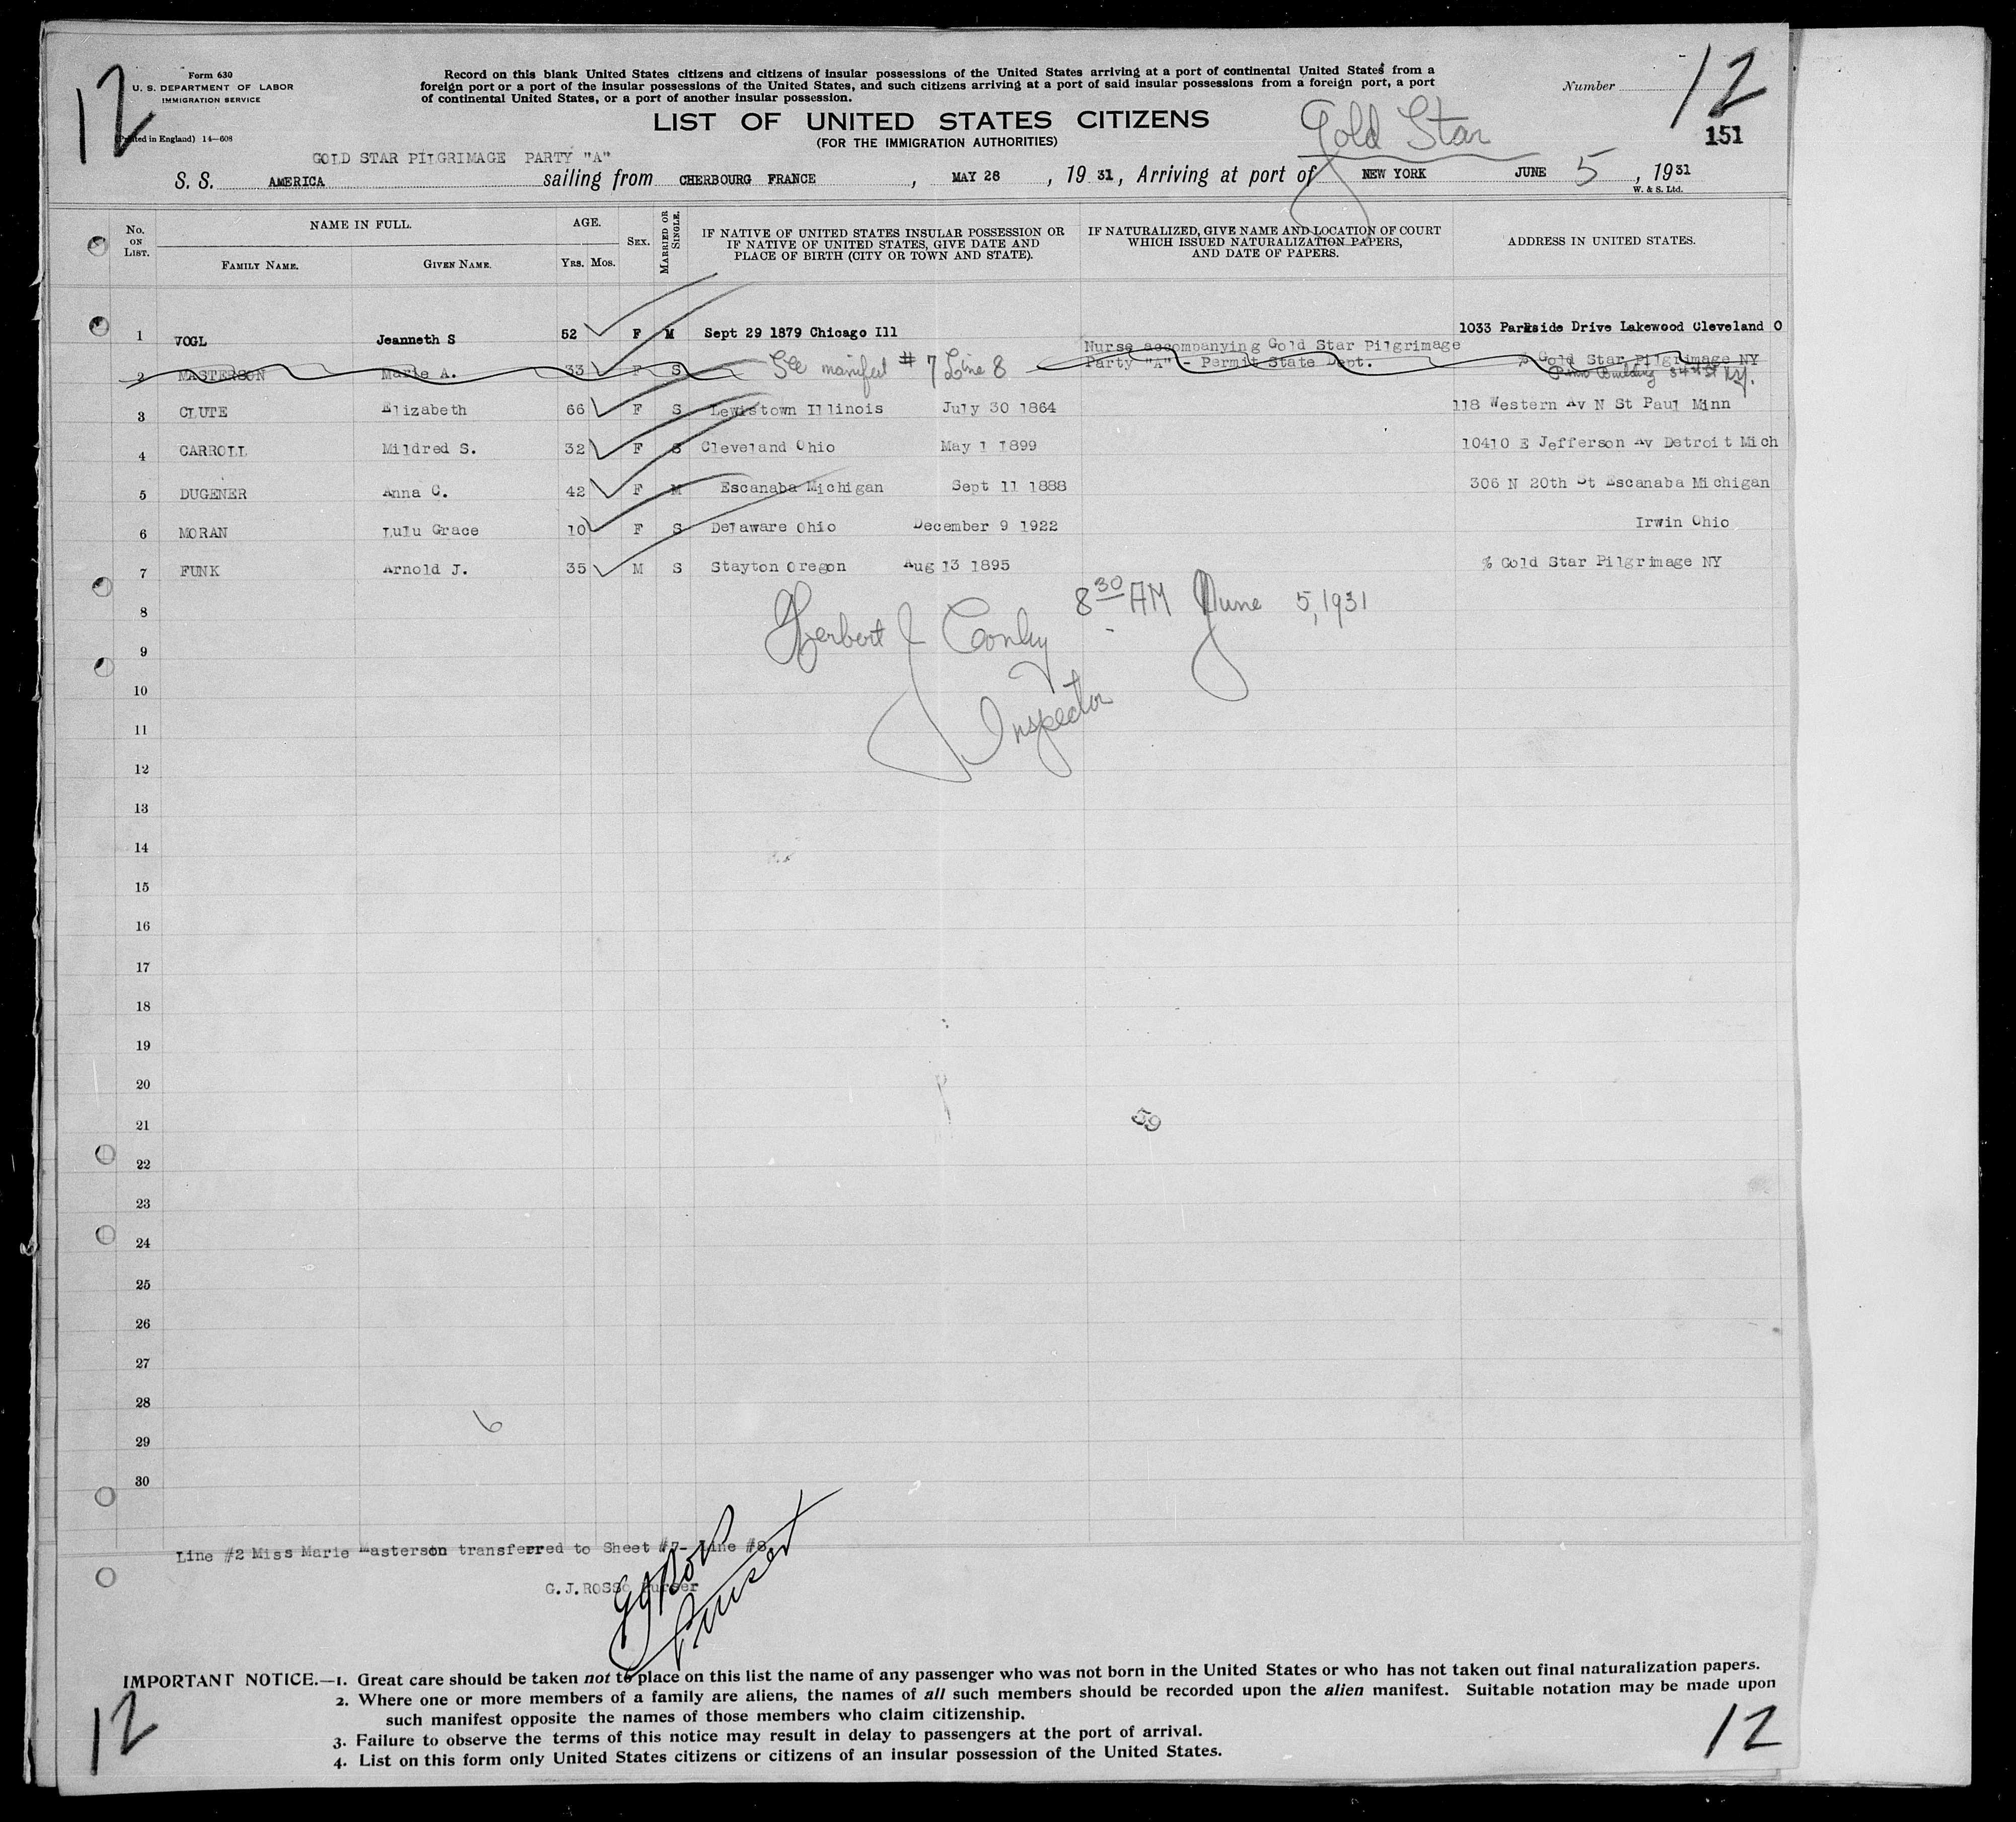 12
Form 630
U. S. DEPARTMENT OF LABOR
IMMIGRATION SERVICE
(Printed in England) 14—608
Record on this blank United States citizens and citizens of insular possessions of the United States arriving at a port of continental United States from a
foreign port or a port of the insular possessions of the United States, and such citizens arriving at a port of said insular possessions from a foreign port, a port
of continental United States, or a port of another insular possession.
Number 12
LIST OF UNITED STATES CITIZENS
(FOR THE IMMIGRATION AUTHORITIES)
Gold Star
151
GOLD STAR PILGRIMAGE PARTY "A"
S. S. AMERICA sailing from CHERBOURG FRANCE, MAY 28, 19 31, Arriving at port of NEW YORK JUNE 5, 1931
W. & S. Ltd.
No. ON LIST. NAME IN FULL. AGE. SEX. MARRIED OR SINGLE. IF NATIVE OF UNITED STATES INSULAR POSSESSION OR IF NATIVE OF UNITED STATES, GIVE DATE AND PLACE OF BIRTH (CITY OR TOWN AND STATE). IF NATURALIZED, GIVE NAME AND LOCATION OF COURT WHICH ISSUED NATURALIZATION PAPERS, AND DATE OF PAPERS. ADDRESS IN UNITED STATES.
FAMILY NAME. GIVEN NAME. YRS. MOS.
1 VOGL Jeanneth S 52 F M Sept 29 1879 Chicago Ill 1033 Parkside Drive Lakewood Cleveland O
2 MASTERSON Marie A. 33 F S See manifest # 7 Line 8 Nurse accompanying Gold Star Pilgrimage Party "A" - Permit State Dept. % Gold Star Pilgrimage NY
Penn Building 34th St NY.
3 CLUTE Elizabeth 66 F S Lewistown Illinois July 30 1864 118 Western Av N St Paul Minn
4 CARROLL Mildred S. 32 F S Cleveland Ohio May 1 1899 10410 E Jefferson Av Detroit Mich
5 DUGENER Anna C. 42 F M Escanaba Michigan Sept 11 1888 306 N 20th St Escanaba Michigan
6 MORAN Lulu Grace 10 F S Delaware Ohio December 9 1922 Irwin Ohio
7 FUNK Arnold J. 35 M S Stayton Oregon Aug 13 1895 % Gold Star Pilgrimage NY
8
8 30 AM June 5, 1931
Herbert J Conly
9
10
Inspector
11
12
13
14
15
16
17
18
19
20
21
59
22
23
24
25
26
27
28
6
29
30
Line #2 Miss Marie Masterson transferred to Sheet #7- Line #8.
G.J.ROSSO Purser
Purser
IMPORTANT NOTICE.—1. Great care should be taken not to place on this list the name of any passenger who was not born in the United States or who has not taken out final naturalization papers.
2. Where one or more members of a family are aliens, the names of all such members should be recorded upon the alien manifest. Suitable notation may be made upon
such manifest opposite the names of those members who claim citizenship.
3. Failure to observe the terms of this notice may result in delay to passengers at the port of arrival.
4. List on this form only United States citizens or citizens of an insular possession of the United States.
12
12